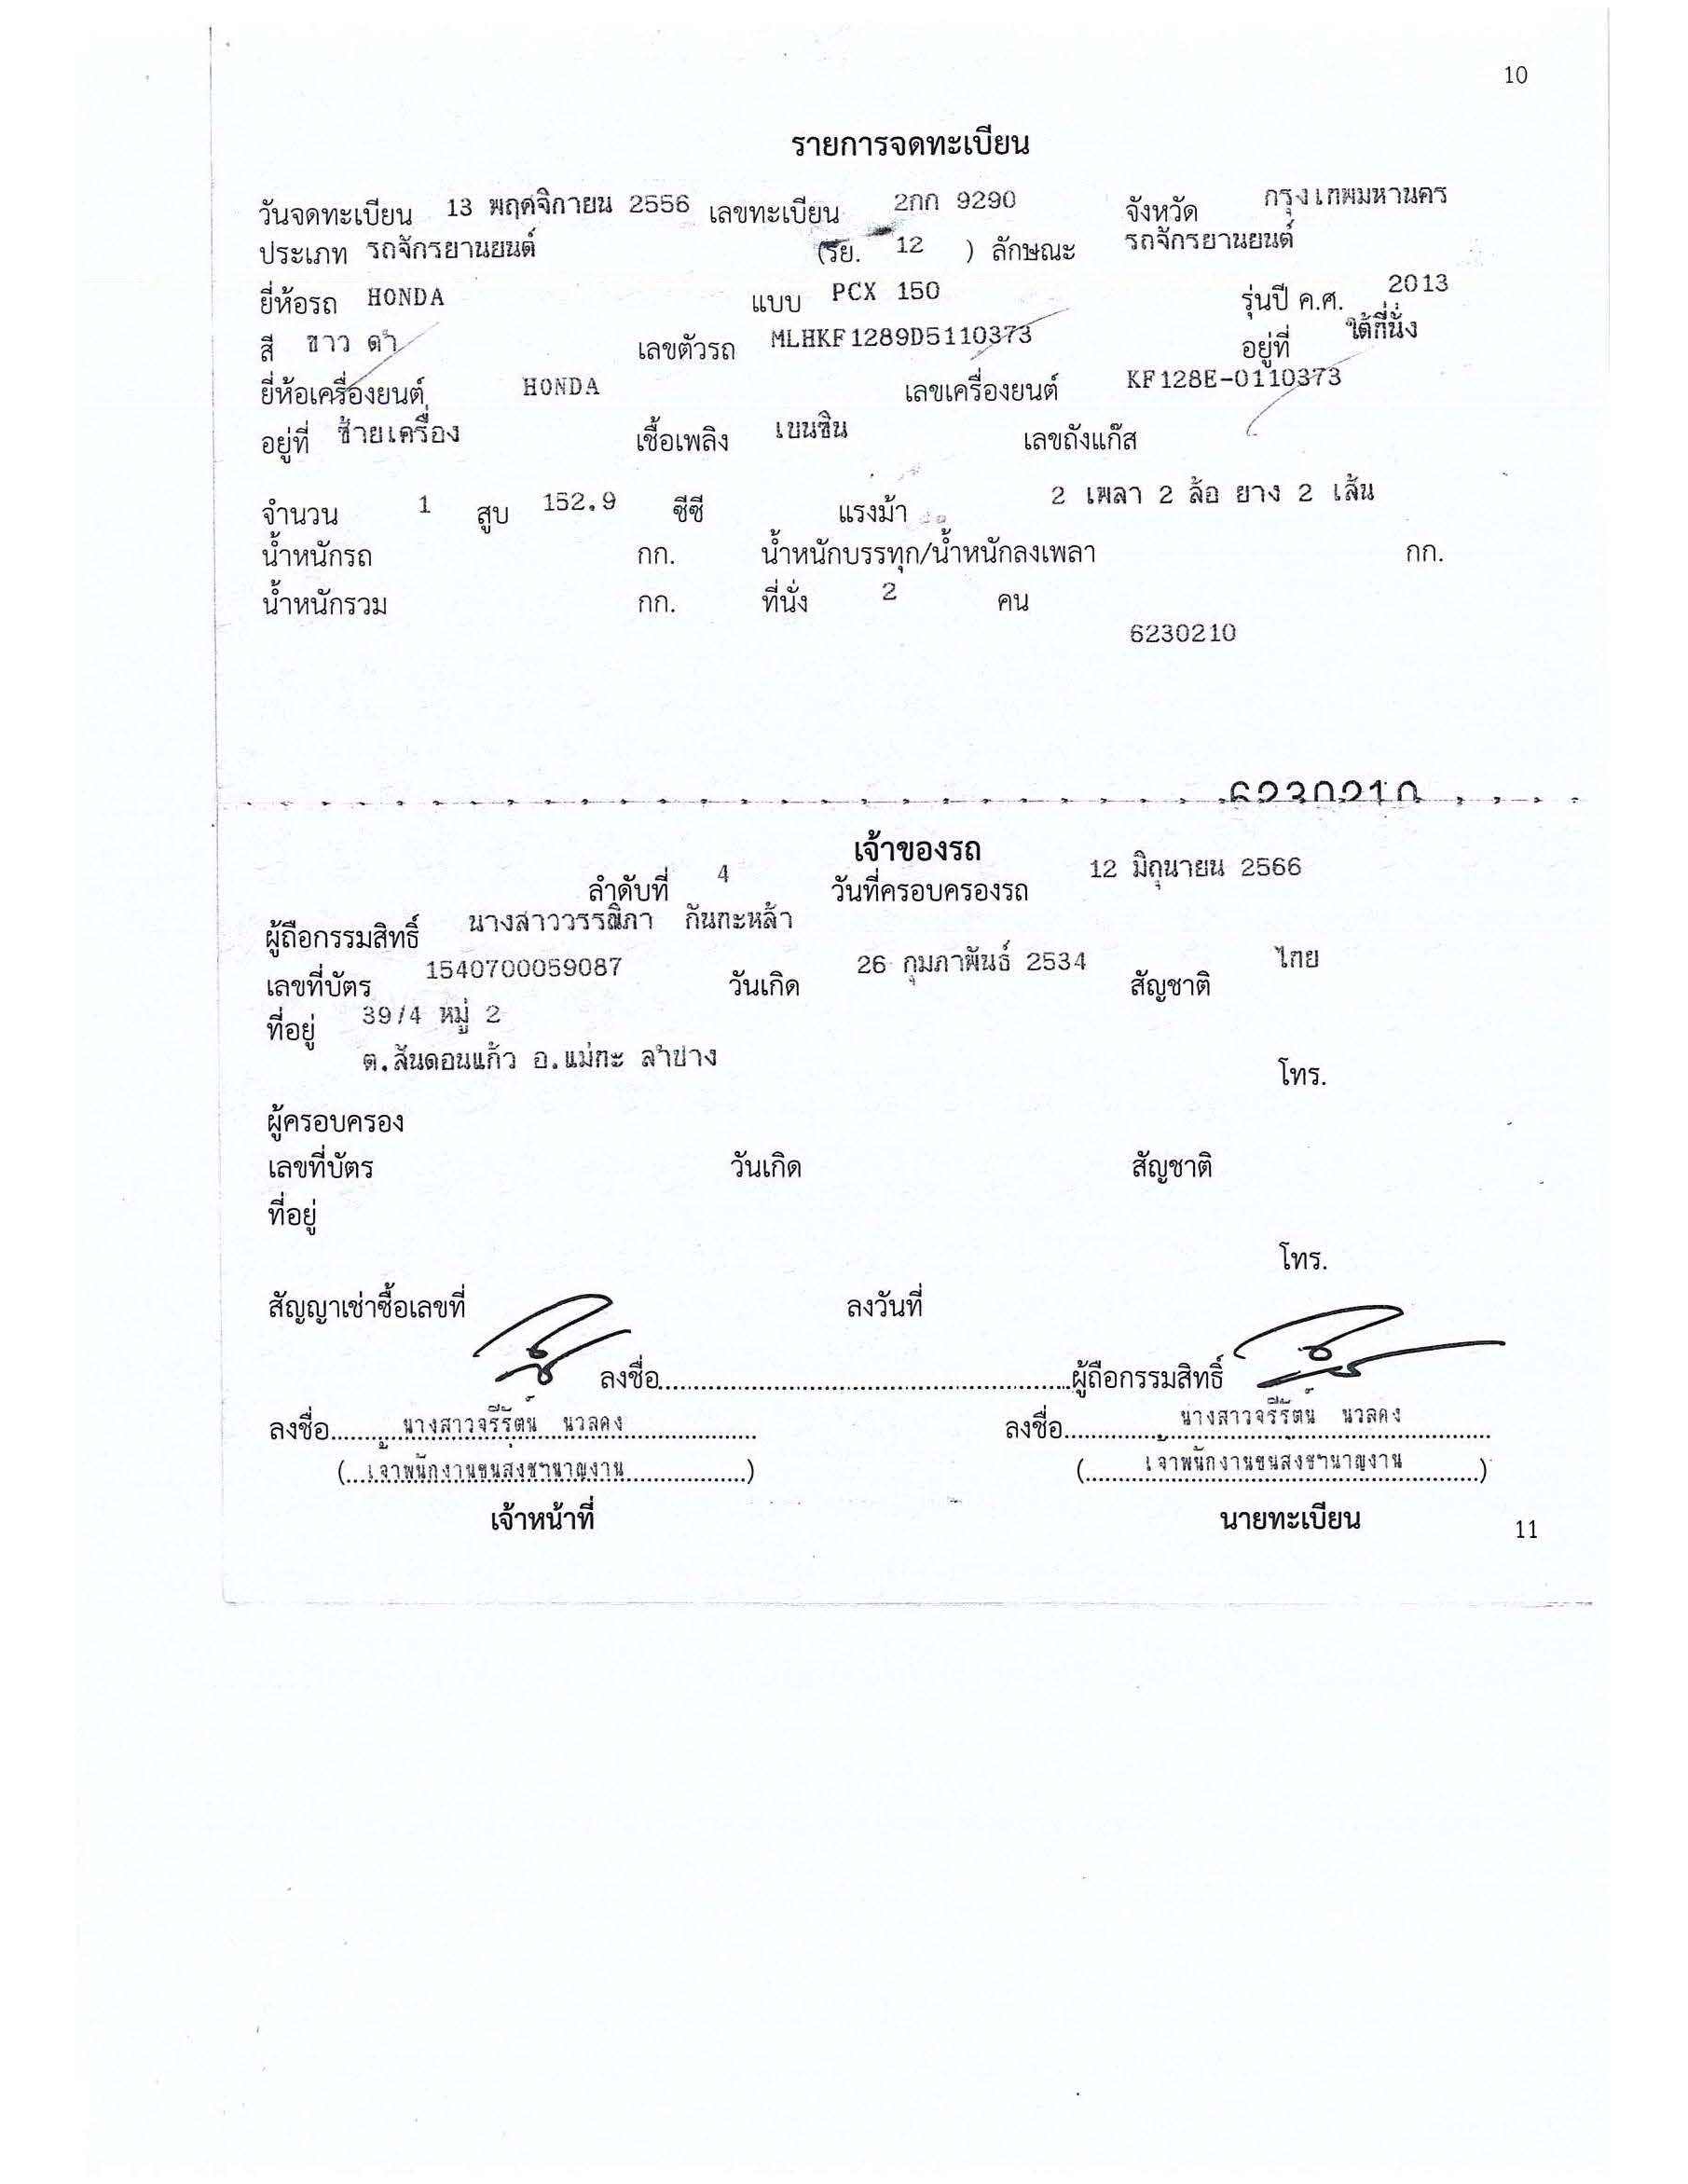 10
รายการจดทะเบียน
วันจดทะเบียน 13 พฤศจิกายน 2556 เลขทะเบียน 2กก 9290 จังหวัด กรุงเทพมหานคร
ประเภท รถจักรยานยนต์ (รย. 12 ) ลักษณะ รถจักรยานยนต์
ยี่ห้อรถ HONDA แบบ PCX 150 รุ่นปี ค.ศ. 2013
สี ขาว ดำ เลขตัวรถ MLHKF1289D5110373 อยู่ที่ ใต้ที่นั่ง
ยี่ห้อเครื่องยนต์ HONDA เลขเครื่องยนต์ KF128E-0110373
อยู่ที่ ซ้ายเครื่อง เชื้อเพลิง เบนซิน เลขถังแก๊ส
จำนวน 1 สูบ 152.9 ซีซี แรงม้า 2 เพลา 2 ล้อ ยาง 2 เส้น
น้ำหนักรถ กก. น้ำหนักบรรทุก/น้ำหนักลงเพลา กก.
น้ำหนักรวม กก. ที่นั่ง 2 คน
6230210
6230210
เจ้าของรถ
ลำดับที่ 4 วันที่ครอบครองรถ 12 มิถุนายน 2566
ผู้ถือกรรมสิทธิ์ นางสาววรรณิภา กันทะหล้า
เลขที่บัตร 1540700059087 วันเกิด 26 กุมภาพันธ์ 2534 สัญชาติ ไทย
ที่อยู่ 39/4 หมู่ 2
ต.สันดอนแก้ว อ.แม่ทะ ลำปาง
โทร.
ผู้ครอบครอง
เลขที่บัตร วันเกิด สัญชาติ
ที่อยู่
โทร.
สัญญาเช่าซื้อเลขที่ ลงวันที่
ลงชื่อ..........ผู้ถือกรรมสิทธิ์
ลงชื่อ.....นางสาวจรีรัตน์ นวลคง..... ลงชื่อ.....นางสาวจรีรัตน์ นวลคง.....
(...เจ้าพนักงานขนส่งชำนาญงาน...) (...เจ้าพนักงานขนส่งชำนาญงาน...)
เจ้าหน้าที่ นายทะเบียน
11